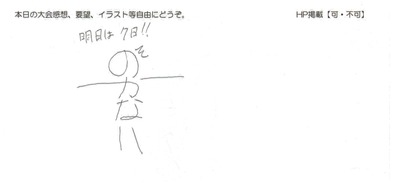 本日の大会感想、要望、イラスト等自由にどうぞ。
HP掲載【可・不可】
明日は7日!!
のそかない